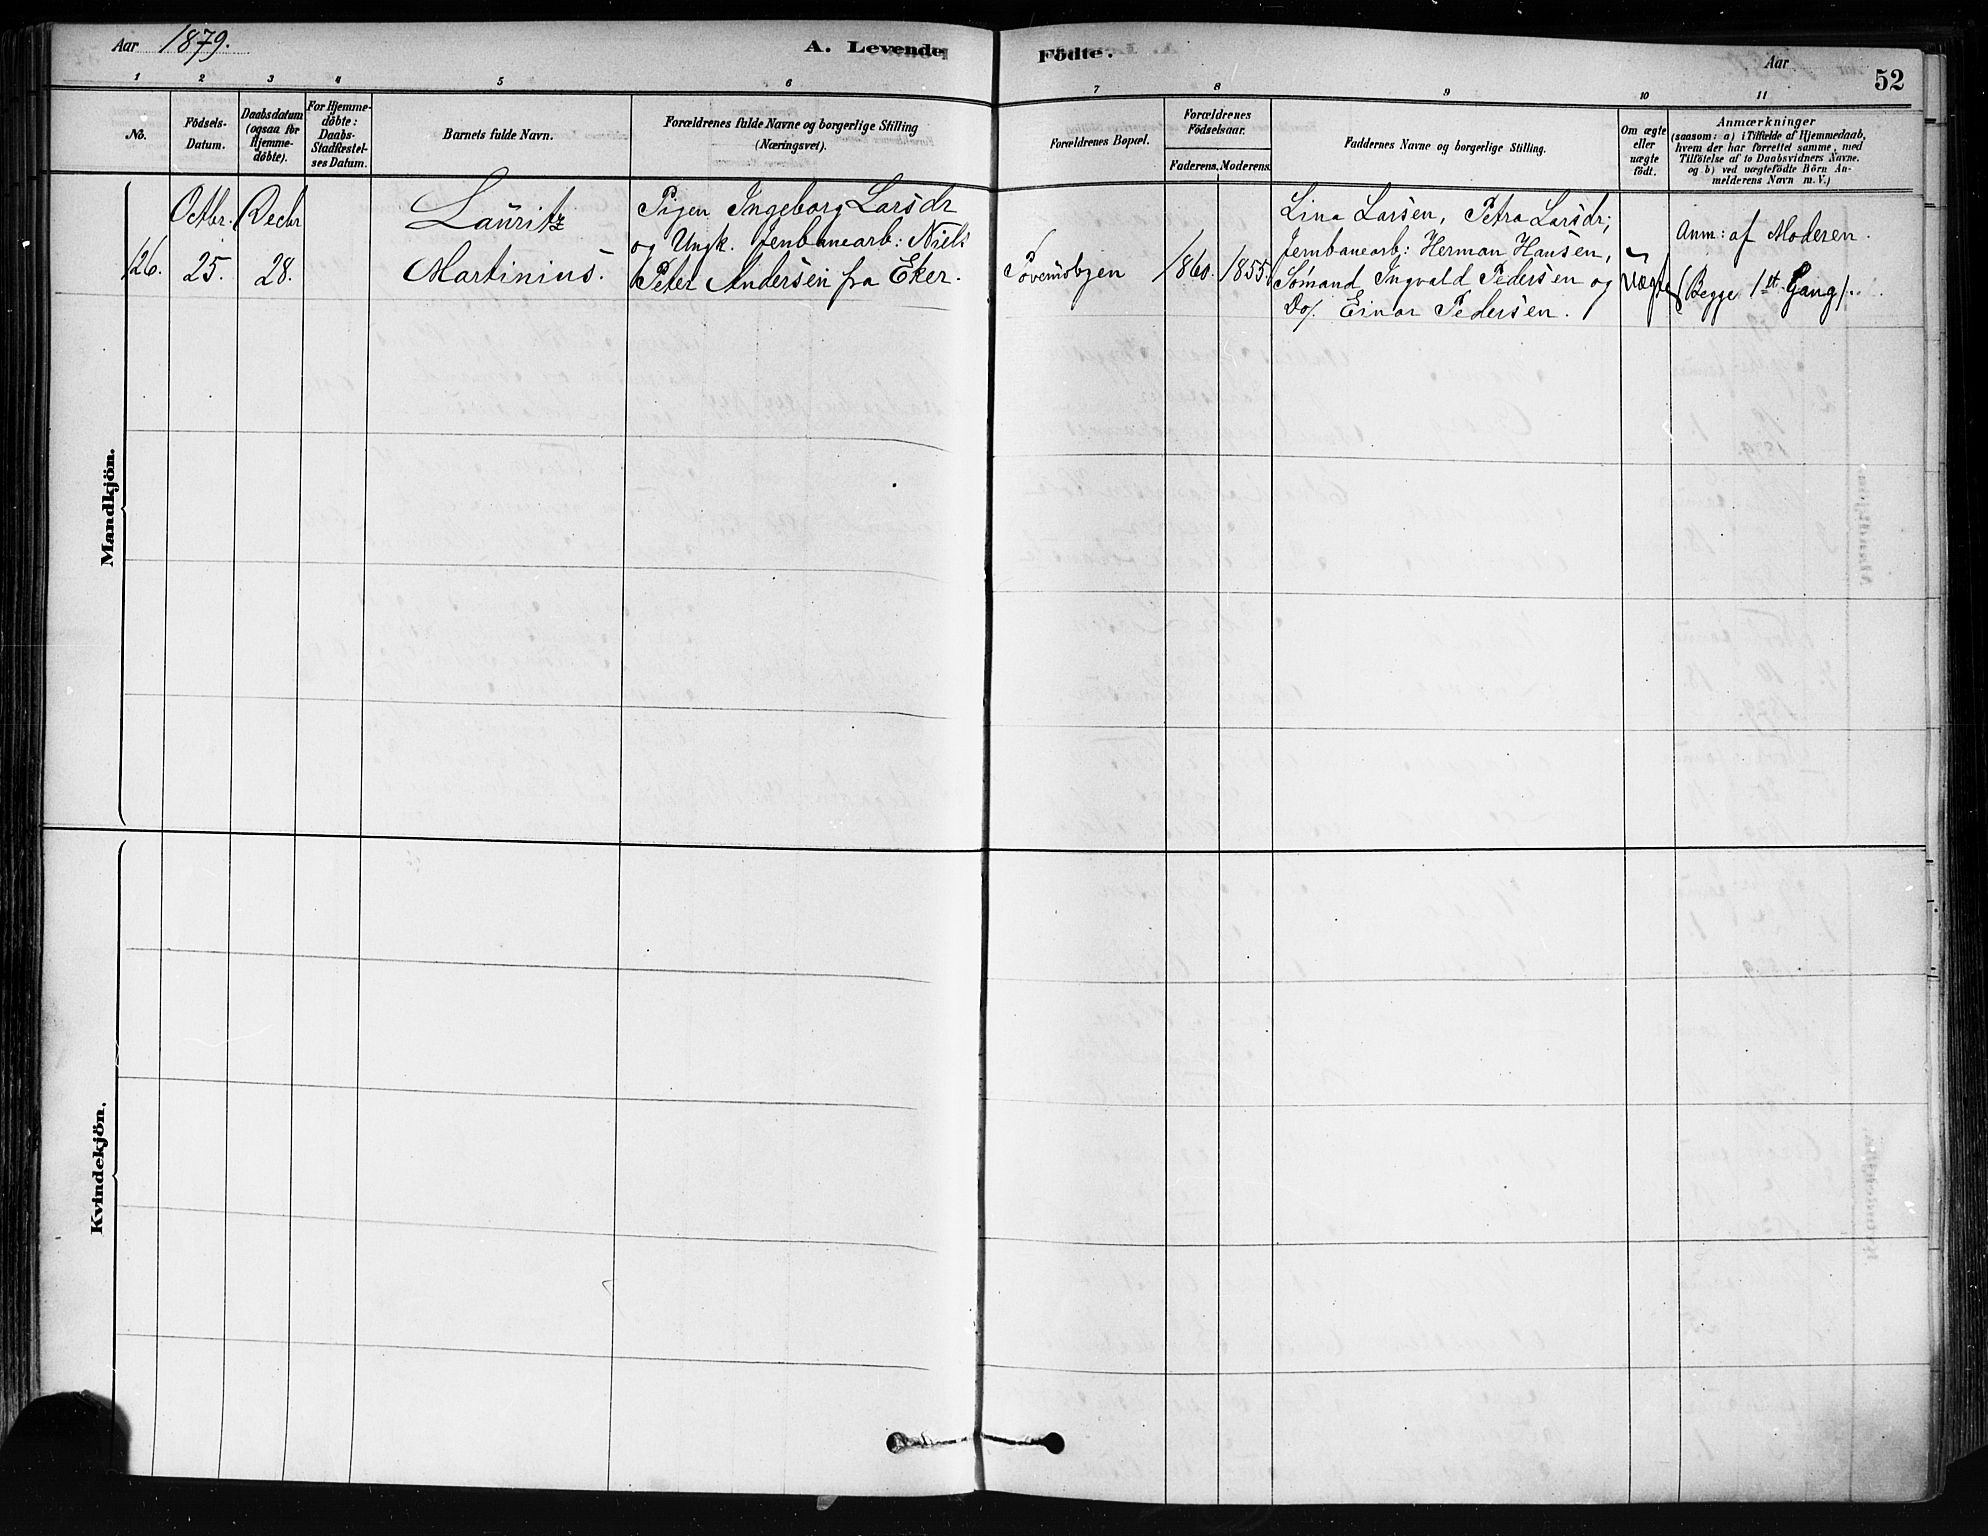 Aar 1879.
A. Levende
Födte.
Aar
52
1
2
3
4
5
6
7
8
9
10
11
No.
Födsels-
Datum.
Daabsdatum
(ogsaa for
Hjemme-
döbte).
For Hjemme-
döbte:
Daabs-
Stadfæstel-
ses Datum.
Barnets fulde Navn.
Forældrenes fulde Navne og borgerlige Stilling
(Næringsvei).
Forældrenes Bopæl.
Forældrenes
Födselsaar.
Faderens.
Moderens.
Faddernes Navne og borgerlige Stilling.
Om ægte
eller
uægte
födt.
Anmærkninger
(saasom: a) i Tilfælde af Hjemmedaab,
hvem der har forrettet samme, med
Tilföielse af to Daabsvidners Navne.
og b) ved uægtefödte Börn An-
melderens Navn m. V.)
Mandkjön.
126.
Octbr.
25.
Decbr
28.
Lauritz
Martinius.
Pigen Ingeborg Larsdr
og Ungk. Jernbanearb: Niels
Peter Andersen fra Eker.
1860.
1855.
Lina Larsen, Petra Larsdr;
Jernbanearb: Herman Hansen,
Sømand Ingvald Pedersen og
Do/. Einar Pedersen.
Uægte
Anm: af Moderen.
(Begge 1st. Gang).
Kvindekjön.